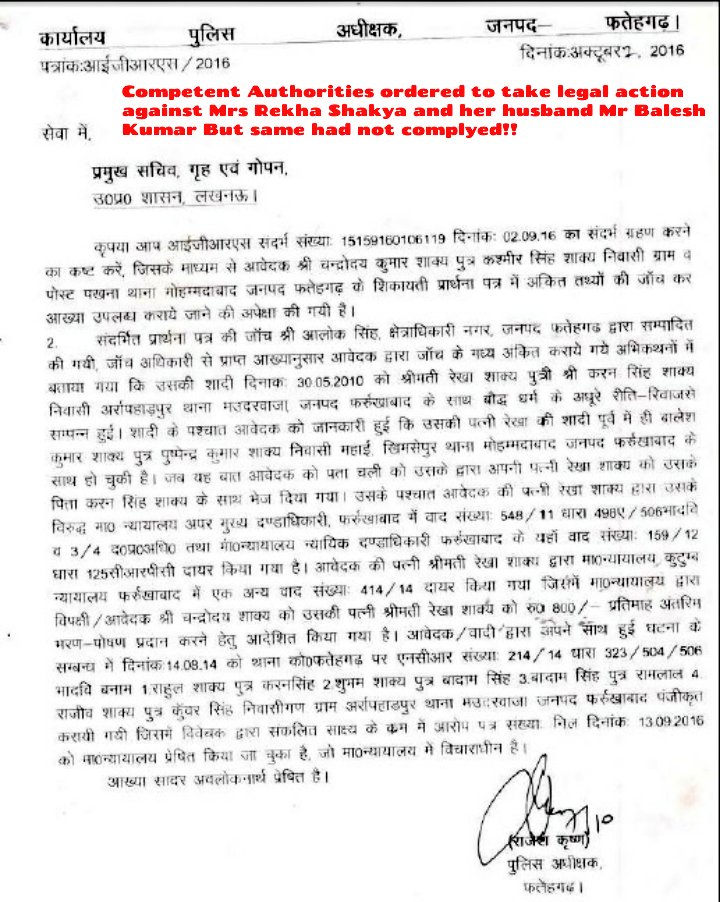 कार्यालय पुलिस अधीक्षक, जनपद– फतेहगढ़।
पत्रांकःआईजीआरएस/2016 दिनांकःअक्टूबर 2, 2016
Competent Authorities ordered to take legal action
against Mrs Rekha Shakya and her husband Mr Balesh
Kumar But same had not complyed!!
सेवा में,
प्रमुख सचिव, गृह एवं गोपन,
उ0प्र0 शासन, लखनऊ।
कृपया आप आईजीआरएस संदर्भ संख्याः 15159160106119 दिनांकः 02.09.16 का संदर्भ ग्रहण करने
का कष्ट करें, जिसके माध्यम से आवेदक श्री चन्द्रोदय कुमार शाक्य पुत्र कश्मीर सिंह शाक्य निवासी ग्राम व
पोस्ट पखना थाना मोहम्मदाबाद जनपद फतेहगढ़ के शिकायती प्रार्थना पत्र में अंकित तथ्यों की जॉच कर
आख्या उपलब्ध कराये जाने की अपेक्षा की गयी है।
2. संदर्भित प्रार्थना पत्र की जॉच श्री आलोक सिंह, क्षेत्राधिकारी नगर, जनपद फतेहगढ द्वारा सम्पादित
की गयी, जॉच अधिकारी से प्राप्त आख्यानुसार आवेदक द्वारा जॉच के मध्य अंकित कराये गये अभिकथनों में
बताया गया कि उसकी शादी दिनाकः 30.05.2010 को श्रीमती रेखा शाक्य पुत्री श्री करन सिंह शाक्य
निवासी अर्रापहाड़पुर थाना मउदरवाजा जनपद फर्रुखाबाद के साथ बौद्ध धर्म के अधूरे रीति-रिवाजसे
सम्पन्न हुई। शादी के पश्चात आवेदक को जानकारी हुई कि उसकी पत्नी रेखा की शादी पूर्व में ही बालेश
कुमार शाक्य पुत्र पुष्पेन्द्र कुमार शाक्य निवासी महाई, खिमसेपुर थाना मोहम्मदाबाद जनपद फर्रुखाबाद के
साथ हो चुकी है। जब यह बात आवेदक को पता चली को उसके द्वारा अपनी पत्नी रेखा शाक्य को उसके
पिता करन सिंह शाक्य के साथ भेज दिया गया। उसके पश्चात आवेदक की पत्नी रेखा शाक्य द्वारा उसके
विरुद्ध मा0 न्यायालय अपर मुख्य दण्डाधिकारी, फर्रुखाबाद में वाद संख्याः 548/11 धारा 498ए/506भादवि
व 3/4 द0प्र0अधि0 तथा मा0न्यायालय न्यायिक दण्डाधिकारी फर्रुखाबाद के यहाँ वाद संख्याः 159/12
धारा 125सीआरपीसी दायर किया गया है। आवेदक की पत्नी श्रीमती रेखा शाक्य द्वारा मा0न्यायालय, कुटुम्ब
न्यायालय फर्रुखाबाद में एक अन्य वाद संख्याः 414/14 दायर किया गया जिसमें मा0न्यायालय द्वारा
विपक्षी/आवेदक श्री चन्द्रोदय शाक्य को उसकी पत्नी श्रीमती रेखा शाक्य को रु0 800/– प्रतिमाह अंतरिम
भरण-पोषण प्रदान करने हेतु आदेशित किया गया है। आवेदक/वादी द्वारा अपने साथ हुई घटना के
सम्बन्ध में दिनांकः14.08.14 को थाना को0फतेहगढ पर एनसीआर संख्याः 214/14 धारा 323/504/506
भादवि बनाम 1.राहुल शाक्य पुत्र करनसिंह 2.शुभम शाक्य पुत्र बादाम सिंह 3.बादाम सिंह पुत्र रामलाल 4.
राजीव शाक्य पुत्र कुँवर सिंह निवासीगण ग्राम अर्रापहाडपुर थाना मउदरवाजा जनपद फर्रुखाबाद पंजीकृत
करायी गयी जिसमें विवेचक द्वारा संकलित साक्ष्य के क्रम में आरोप पत्र संख्याः निल दिनांकः 13.09.2016
को मा0न्यायालय प्रेषित किया जा चुका है, जो मा0न्यायालय मे विचाराधीन है।
आख्या सादर अवलोकनार्थ प्रेषित है।
(राजेश कृष्ण)
पुलिस अधीक्षक,
फतेहगढ़।